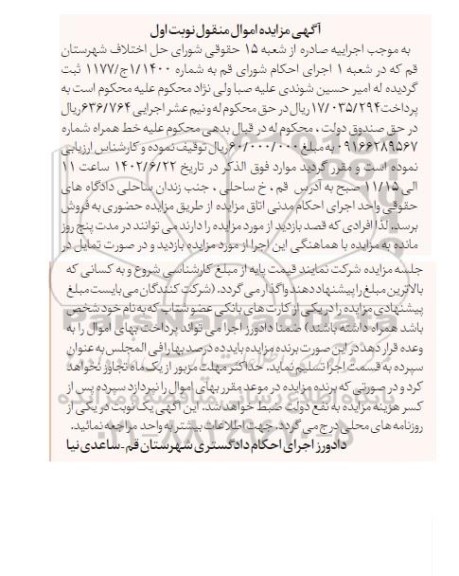 آگهی مزایده اموال منقول نوبت اول
به موجب اجراییه صادره از شعبه ۱۵ حقوقی شورای حل اختلاف شهرستان
قم که در شعبه ۱ اجرای احکام شورای قم به شماره ۱/۱۴۰۰ج/۱۱۷۷ ثبت
گردیده له امیر حسین شوندی علیه صبا ولی نژاد محکوم علیه محکوم است به
پرداخت ۱۷/۰۳۵/۲۹۴ ریال در حق محکوم له و نیم عشر اجرایی ۶۳۶/۷۶۴ ریال
در حق صندوق دولت ، محکوم له در قبال بدهی محکوم علیه خط همراه شماره
۰۹۱۶۶۲۸۹۵۶۷ به مبلغ ۶۰/۰۰۰/۰۰۰ ریال توقیف نموده و کارشناس ارزیابی
نموده است و مقرر گردید موارد فوق الذکر در تاریخ ۱۴۰۲/۶/۲۲ ساعت ۱۱
الی ۱۱/۱۵ صبح به آدرس قم ، خ ساحلی ، جنب زندان ساحلی دادگاه های
حقوقی واحد اجرای احکام مدنی اتاق مزایده از طریق مزایده حضوری به فروش
برسد، لذا افرادی که قصد بازدید از مورد مزایده را دارند می توانند در مدت پنج روز
مانده به مزایده با هماهنگی این اجرا از مورد مزایده بازدید و در صورت تمایل در
جلسه مزایده شرکت نمایند قیمت پایه از مبلغ کارشناسی شروع و به کسانی که
بالاترین مبلغ را پیشنهاد دهند واگذار می گردد. (شرکت کنندگان می بایست مبلغ
پیشنهادی مزایده را در یکی از کارت های بانکی عضو شتاب که به نام خود شخص
باشد همراه داشته باشند) ضمنا دادورز اجرا می تواند پرداخت بهای اموال را به
وعده قرار دهد در این صورت برنده مزایده باید ده درصد بها را فی المجلس به عنوان
سپرده به قسمت اجرا تسلیم نماید. حداکثر مهلت مزبور از یک ماه تجاوز نخواهد
کرد و در صورتی که برنده مزایده در موعد مقرر بهای اموال را نپردازد سپرده پس از
کسر هزینه مزایده به نفع دولت ضبط خواهد شد. این آگهی یک نوبت در یکی از
روزنامه های محلی درج می گردد. جهت اطلاعات بیشتر به واحد مراجعه نمائید.
دادورز اجرای احکام دادگستری شهرستان قم - ساعدی نیا